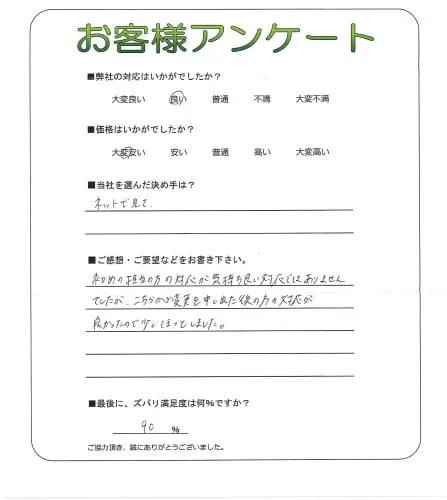 お客様アンケート
■弊社の対応はいかがでしたか？
大変良い 良い 普通 不満 大変不満
■価格はいかがでしたか？
大変安い 安い 普通 高い 大変高い
■当社を選んだ決め手は？
ネットで見て、
■ご感想・ご要望などをお書き下さい。
初めの担当の方の対応が気持ち良い対応ではありません
でしたが、こちらが変更を申し出た後の方の対応が
良かったので少しほっとしました。
■最後に、ズバリ満足度は何％ですか？
90 ％
ご協力頂き、誠にありがとうございました。